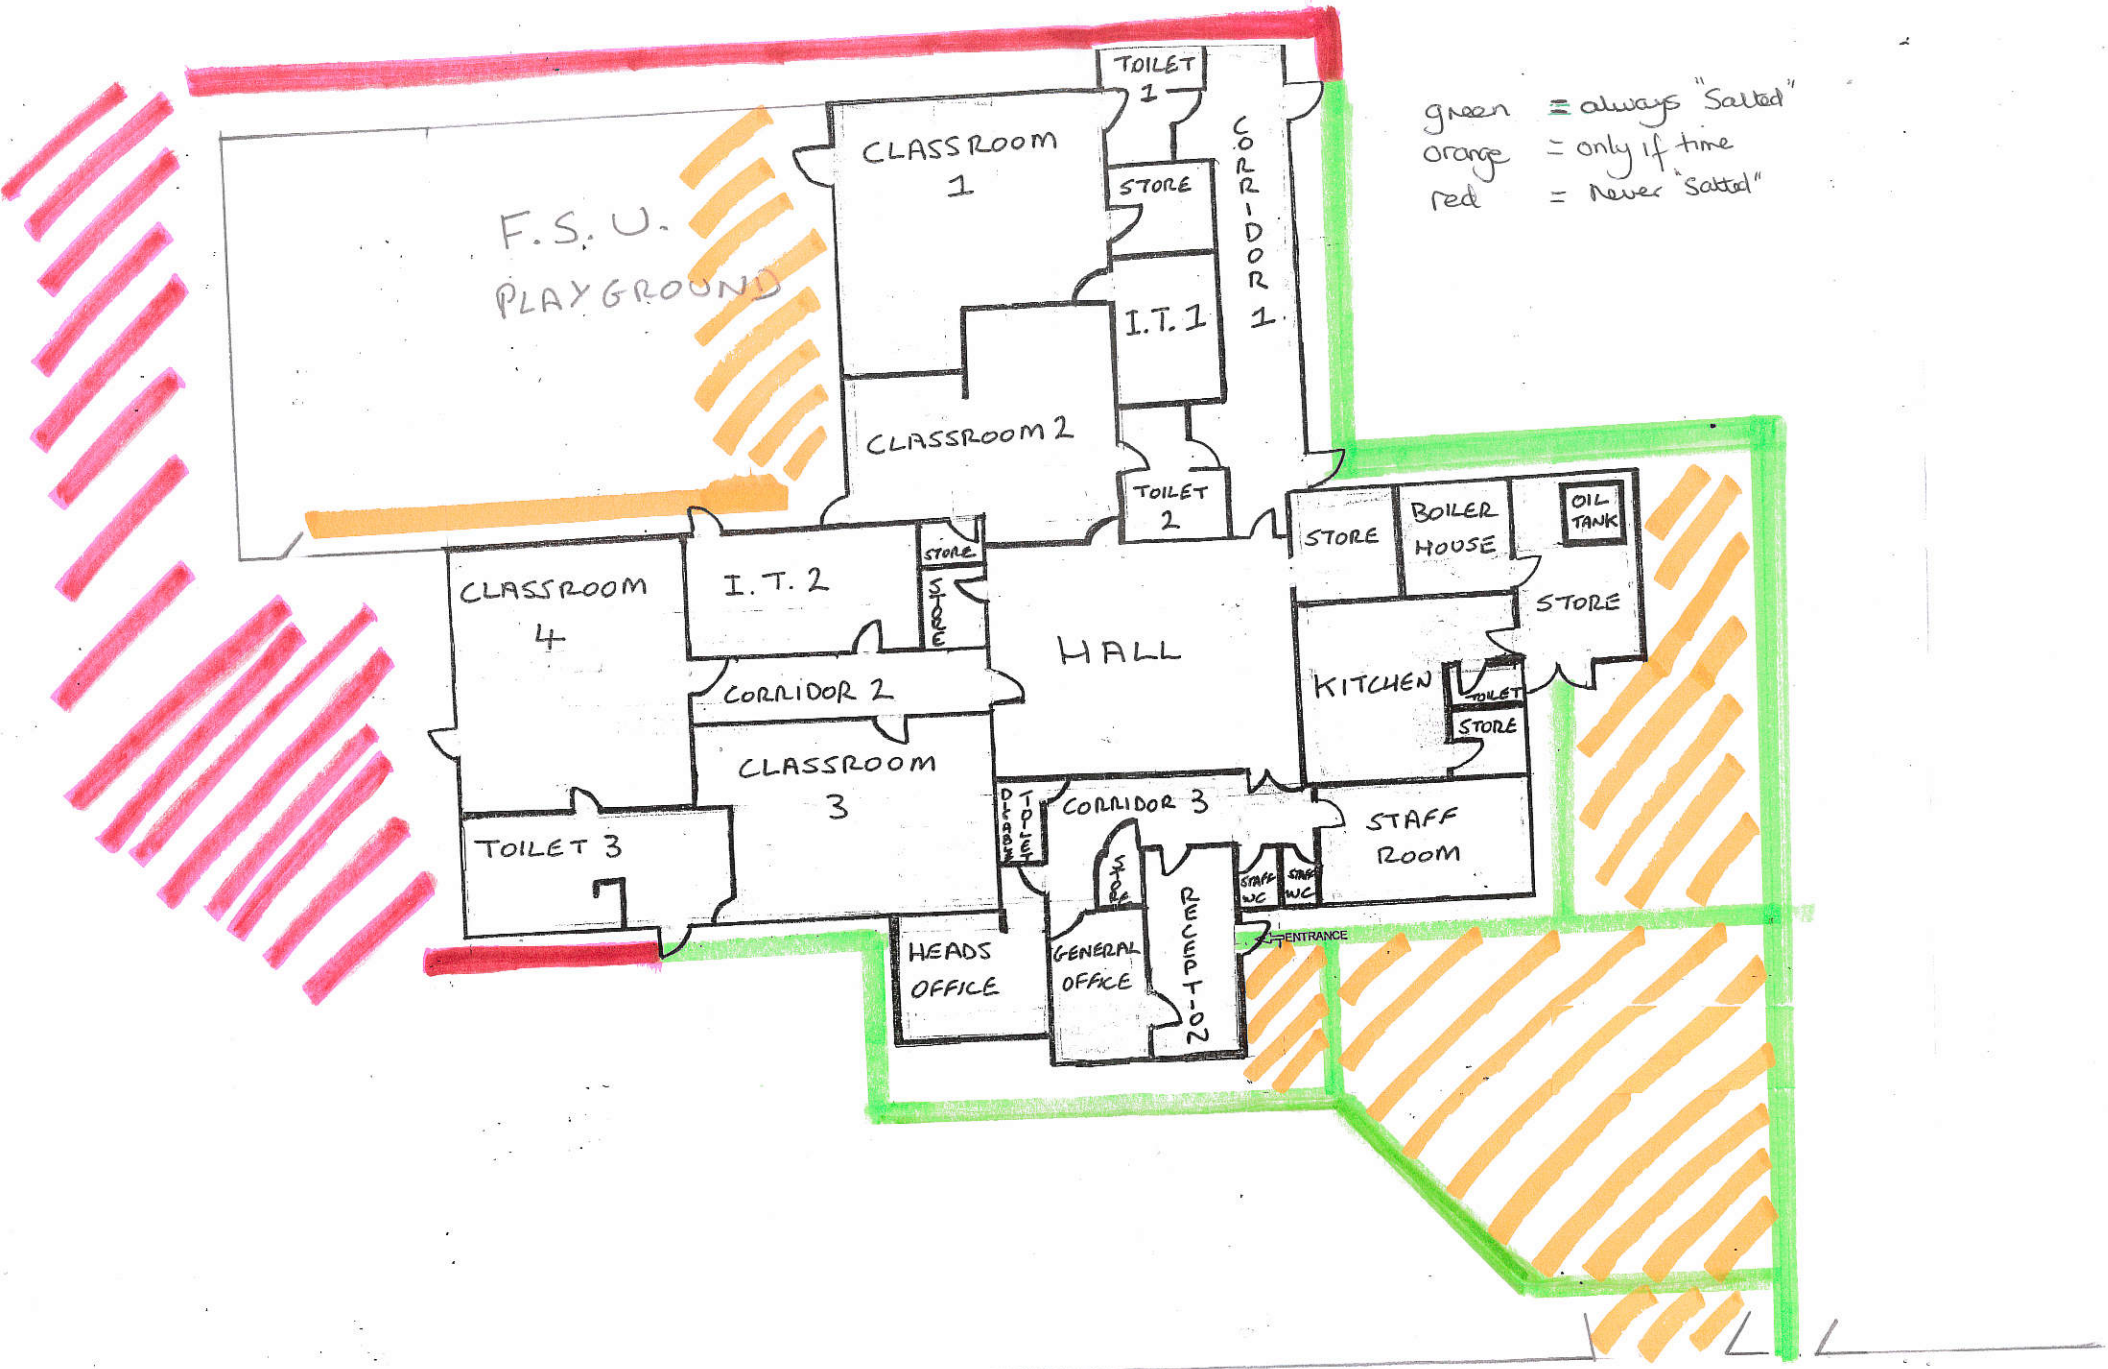 green = always "Salted"
orange = only if time
red = never "Salted"
TOILET
1
CLASSROOM
1
STORE
CORRIDOR 1.
F.S.U.
PLAYGROUND
I.T.1
CLASSROOM 2
TOILET
2
STORE
BOILER
HOUSE
OIL
TANK
STORE
CLASSROOM
4
I.T.2
STORE
STORE
HALL
KITCHEN
TOILET
STORE
CORRIDOR 2
CLASSROOM
3
DISABLE
TOILET
CORRIDOR 3
STAFF
ROOM
TOILET 3
STORE
STAFF
WC
STAFF
WC
RECEPTION
ENTRANCE
HEADS
OFFICE
GENERAL
OFFICE